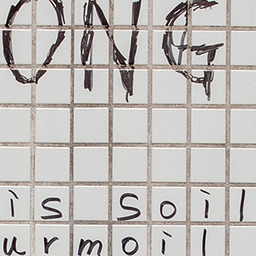 ONG
is soil
urmoil